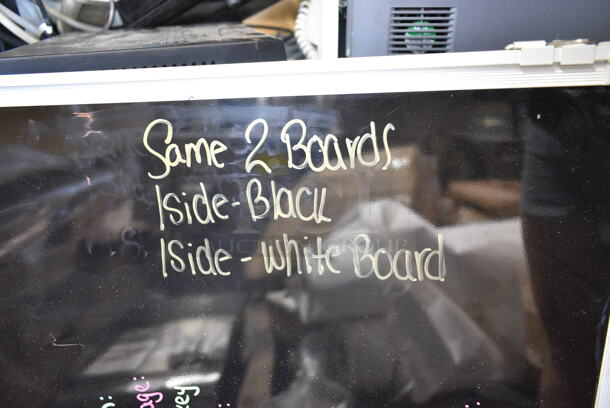 Same 2 Boards
1side-Black
1side-White Board